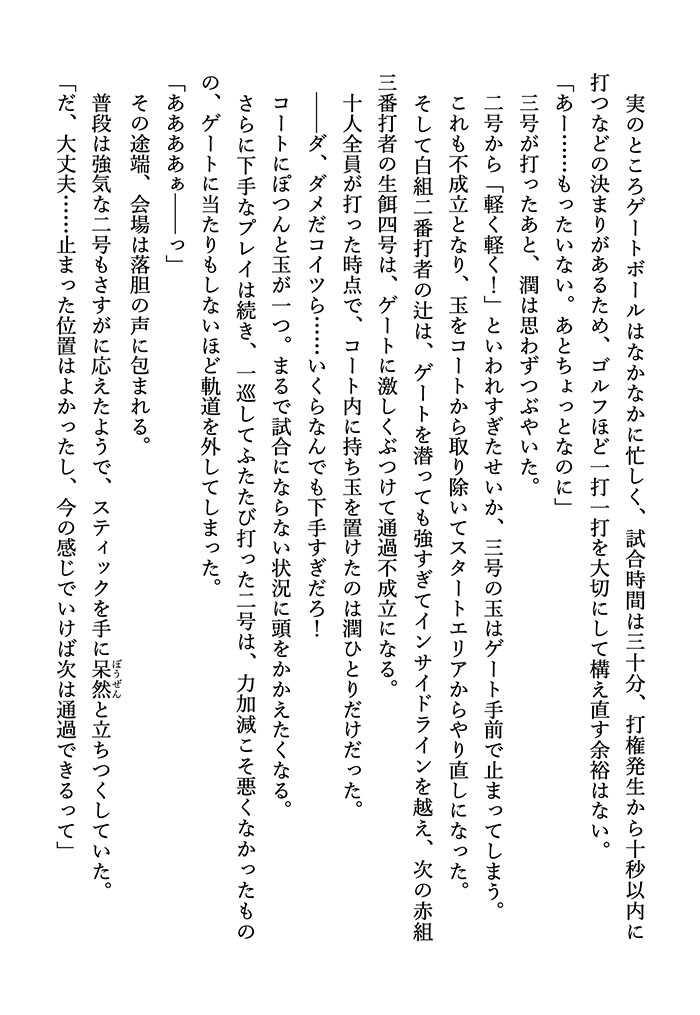 実のところゲートボールはなかなかに忙しく、試合時間は三十分、打権発生から十秒以内に
打つなどの決まりがあるため、ゴルフほど一打一打を大切にして構え直す余裕はない。
「あー……もったいない。あとちょっとなのに」
　三号が打ったあと、潤は思わずつぶやいた。
　二号から「軽く軽く！」といわれすぎたせいか、三号の玉はゲート手前で止まってしまう。
　これも不成立となり、玉をコートから取り除いてスタートエリアからやり直しになった。
　そして白組二番打者の辻は、ゲートを潜っても強すぎてインサイドラインを越え、次の赤組
三番打者の生餌四号は、ゲートに激しくぶつけて通過不成立になる。
　十人全員が打った時点で、コート内に持ち玉を置けたのは潤ひとりだけだった。
　――ダ、ダメだコイツら……いくらなんでも下手すぎだろ！
　コートにぽつんと玉が一つ。まるで試合にならない状況に頭をかかえたくなる。
　さらに下手なプレイは続き、一巡してふたたび打った二号は、力加減こそ悪くなかったもの
の、ゲートに当たりもしないほど軌道を外してしまった。
「ああああぁ――っ」
　その途端、会場は落胆の声に包まれる。
　普段は強気な二号もさすがに応えたようで、スティックを手に呆然ぼうぜんと立ちつくしていた。
「だ、大丈夫……止まった位置はよかったし、今の感じでいけば次は通過できるって」